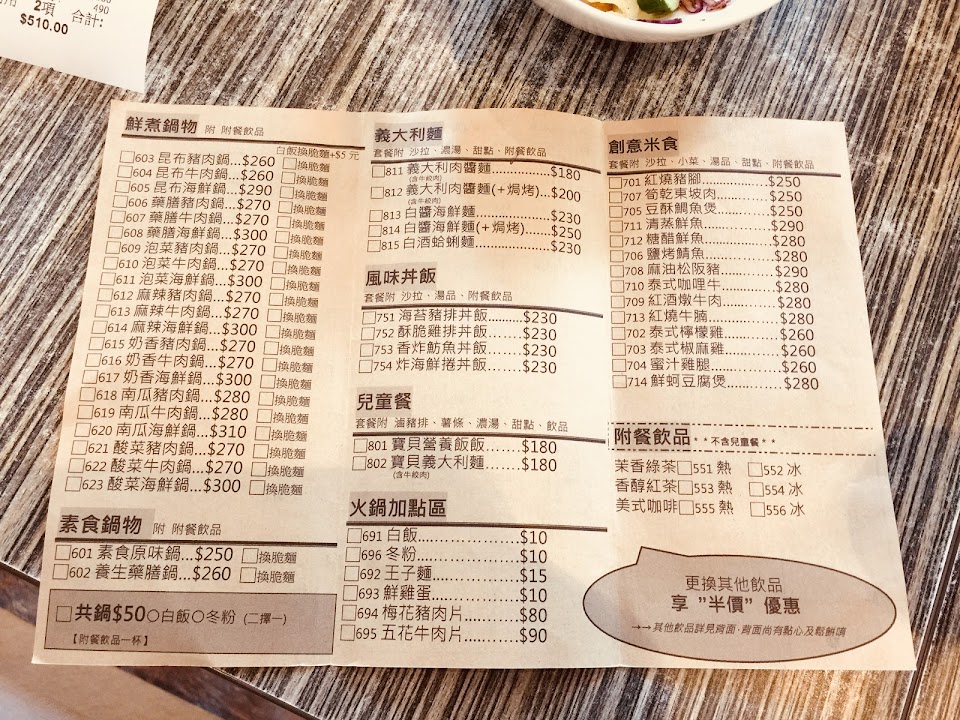 用 2項 合計:
490
$510.00
鮮煮鍋物 附 附餐飲品
白飯換脆麵+$5 元
603 昆布豬肉鍋...$260 換脆麵
604 昆布牛肉鍋...$260 換脆麵
605 昆布海鮮鍋...$290 換脆麵
606 藥膳豬肉鍋...$270 換脆麵
607 藥膳牛肉鍋...$270 換脆麵
608 藥膳海鮮鍋...$300 換脆麵
609 泡菜豬肉鍋...$270 換脆麵
610 泡菜牛肉鍋...$270 換脆麵
611 泡菜海鮮鍋...$300 換脆麵
612 麻辣豬肉鍋...$270 換脆麵
613 麻辣牛肉鍋...$270 換脆麵
614 麻辣海鮮鍋...$300 換脆麵
615 奶香豬肉鍋...$270 換脆麵
616 奶香牛肉鍋...$270 換脆麵
617 奶香海鮮鍋...$300 換脆麵
618 南瓜豬肉鍋...$280 換脆麵
619 南瓜牛肉鍋...$280 換脆麵
620 南瓜海鮮鍋...$310 換脆麵
621 酸菜豬肉鍋...$270 換脆麵
622 酸菜牛肉鍋...$270 換脆麵
623 酸菜海鮮鍋...$300 換脆麵
素食鍋物 附 附餐飲品
601 素食原味鍋...$250 換脆麵
602 養生藥膳鍋...$260 換脆麵
共鍋$50○白飯○冬粉 (二擇一)
【附餐飲品一杯】
義大利麵
套餐附 沙拉、濃湯、甜點、附餐飲品
811 義大利肉醬麵...........$180
(含牛絞肉)
812 義大利肉醬麵(+焗烤)...$200
(含牛絞肉)
813 白醬海鮮麵..............$230
814 白醬海鮮麵(+焗烤)......$250
815 白酒蛤蜊麵..............$230
風味丼飯
套餐附 沙拉、湯品、附餐飲品
751 海苔豬排丼飯.........$230
752 酥脆雞排丼飯.........$230
753 香炸魴魚丼飯.........$230
754 炸海鮮捲丼飯.........$230
兒童餐
套餐附 滷豬排、薯條、濃湯、甜點、飲品
801 寶貝營養飯飯.......$180
802 寶貝義大利麵.......$180
(含牛絞肉)
火鍋加點區
691 白飯...................$10
696 冬粉...................$10
692 王子麵................$15
693 鮮雞蛋................$10
694 梅花豬肉片..........$80
695 五花牛肉片..........$90
創意米食
套餐附 沙拉、小菜、湯品、甜點、附餐飲品
701 紅燒豬腳................$250
707 筍乾東坡肉.............$250
705 豆酥鯛魚煲.............$250
711 清蒸鮮魚................$290
712 糖醋鮮魚................$280
706 鹽烤鯖魚................$280
708 麻油松阪豬.............$290
710 泰式咖哩牛.............$280
709 紅酒燉牛肉.............$280
713 紅燒牛腩................$280
702 泰式檸檬雞.............$260
703 泰式椒麻雞.............$260
704 蜜汁雞腿................$260
714 鮮蚵豆腐煲.............$280
附餐飲品 **不含兒童餐**
茉香綠茶 551 熱 552 冰
香醇紅茶 553 熱 554 冰
美式咖啡 555 熱 556 冰
更換其他飲品
享 ”半價” 優惠
→→其他飲品詳見背面‧背面尚有點心及鬆餅唷